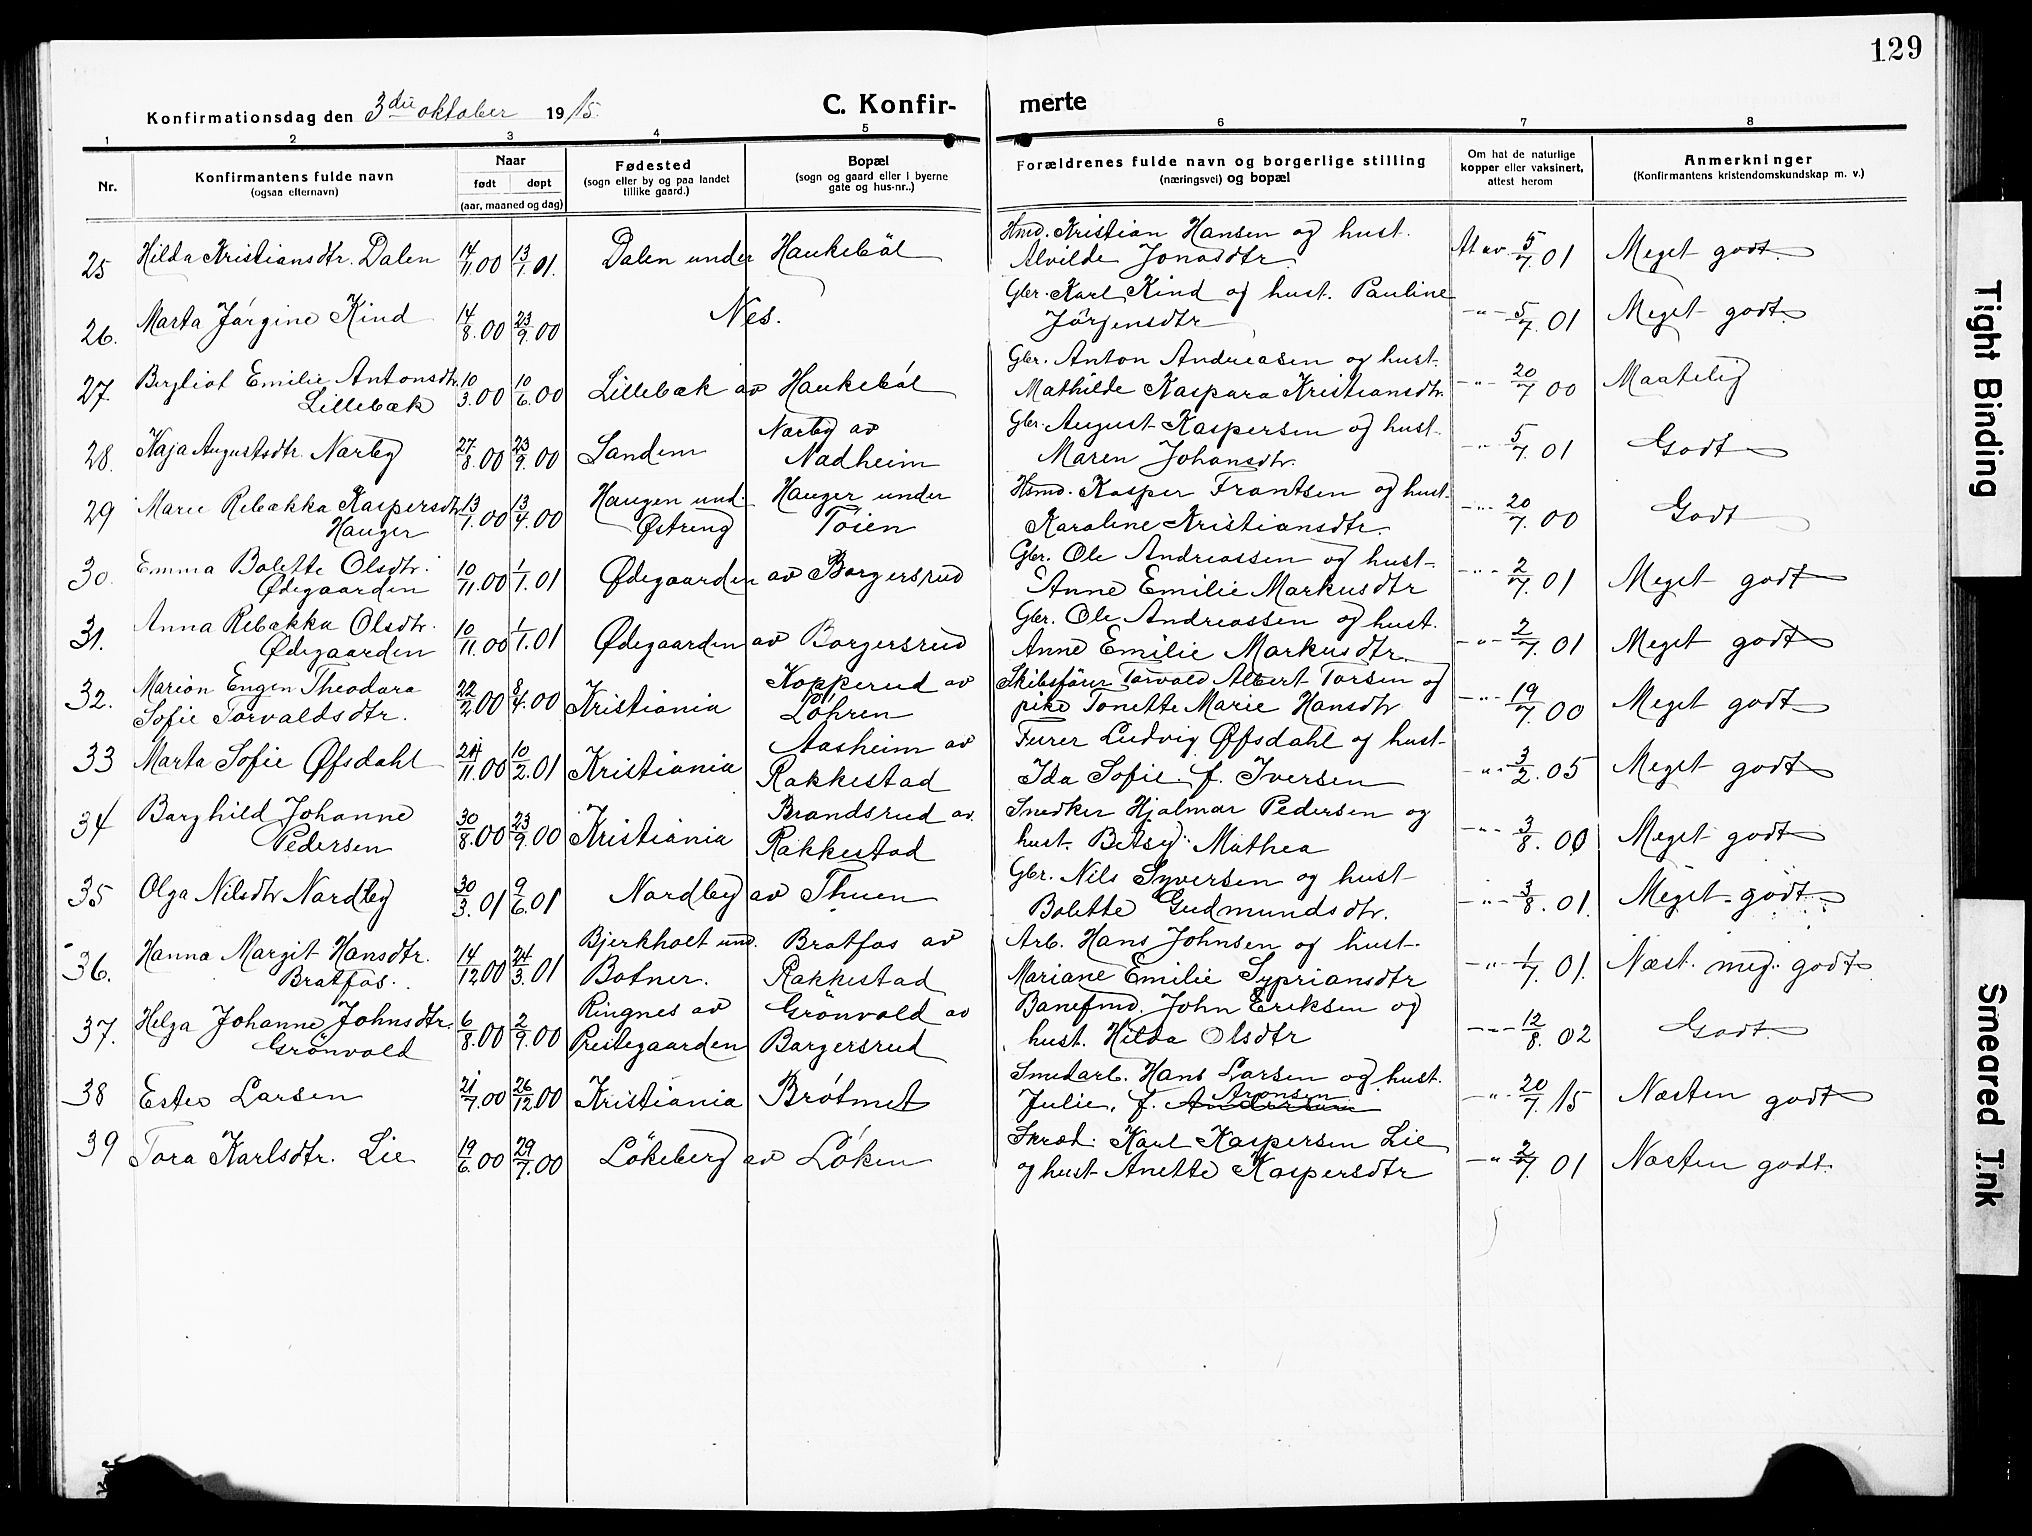 129
Konfirmationsdag den 3die oktober 1915.
C. Konfir- merte
1 2 3 4 5 6 7 8
Nr.
Konfirmantens fulde navn
(ogsaa efternavn)
Naar
født døpt
(aar, maaned og dag)
Fødested
(sogn eller by og paa landet
tillike gaard.)
Bopæl
(sogn og gaard eller i byerne
gate og hus-nr..)
Forældrenes fulde navn og borgerlige stilling
(næringsvei) og bopæl
Om hat de naturlige
kopper eller vaksinert,
attest herom
Anmerkninger
(Konfirmantens kristendomskundskap m. v.)
25 Hilda Kristiansdtr. Dalen 14/11.00 13/1.01. Dalen under Haukeböl Hmd. Kristian Hansen og hust.
Alvilde Jonasdtr. At av. 5/7.01 Meget godt.
26. Marta Jørgine Kind 14/8.00 23/9.00 Nes. Gbr. Karl Kind og hust. Pauline
Jörgensdtr -"- 5/7.01 Meget godt.
27. Bergliot Emilie Antonsdtr.
Lillebæk 10/3.00 10/6.00 Lillebæk av Haukeböl Gbr. Anton Andreasen og hust.
Mathilde Kaspara Kristiansdtr. -"- 20/7 00 Maatelig
28. Kaja Augustsdtr. Nærby 27/8.00 23/9.00 Sandem Nærby av
Nadheim Gbr. August Kaspersen og hust.
Maren Johansdtr. -"- 5/7.01 Godt
29 Marie Rebækka Kaspersdtr
Hauger 13/1.00 13/4.00 Haugen und.
Østreng Hauger under
Töien Hsmd. Kasper Frantsen og hust.
Karoline Kristiansdtr. -"- 20/7.00 Godt
30. Emma Bolette Olsdtr.
Ødegaarden 10/11.00 1/1.01 Ødegaarden av Borgersrud Gbr. Ole Andreassen og hust.
Anne Emilie Markusdtr -"- 2/7.01 Meget godt
31. Anna Rebækka Olsdtr.
Ødegaarden 10/11.00 1/1.01 Ødegaarden av Borgersrud Gbr. Ole Andreassen og hust.
Anne Emilie Markusdtr. -"- 2/7.01 Meget godt
32. Marion Engen Theodora
Sofie Torvaldsdtr. 22/2 00 8/4.00 Kristiania Kopperud av
Löhren Skibsfører Torvald Albert Torsen og
pike Tonette Marie Hansdtr -"- 19/7.00 Meget godt
33 Marta Sofie Øfsdahl 24/11.00 10/2.01 Kristiania Aasheim av
Rakkestad Furer Ludvig Øfsdahl og hust.
Ida Sofie. f. Iversen -"- 3/2.05 Meget godt
34 Borghild Johanne
Pedersen 30/8.00 23/9.00 Kristiania Brandsrud av.
Rakkestad Snedker Hjalmar Pedersen og
hust. Betsy Mathea -"- 3/8.00 Meget godt
35 Olga Nilsdtr Nordby 30/3.01 9/6.01 Nordby av Thuen Gbr. Nils Syversen og hust
Bolette Gudmundsdtr. -"- 3/8.01. Meget godt
36. Hanna Margit Hansdtr.
Bratfos. 14/12 00 24/3.01 Bjerkholt und.
Botner. Bratfos av
Rakkestad Arb. Hans Johnsen og hust.
Mariane Emilie Sypriansdtr -"- 1/7.01. Næst. meg. godt
37. Helga Johanne Johnsdtr.
Grönvold 6/8.00 2/9.00 Ringnes av
Prestegaarden Grönvold av
Borgersrud Banefmd. John Eriksen og
hust. Hilda Olsdtr -"- 12/8. 02 Godt.
38 Ester Larsen 21/7.00 26/12 00 Kristiania Brötmet Smedarb. Hans Larsen og hust.
Julie. f. Aronsen -"- 20/7. 15 Næsten godt
39 Tora Karlsdtr. Lie 19/6.00 29/7.00 Lökeberg av Löken Skræd. Karl Kaspersen Lie
og hust Anette Kaspersdtr -"- 2/7.01 Næsten godt.
Tight Binding
Smeared Ink